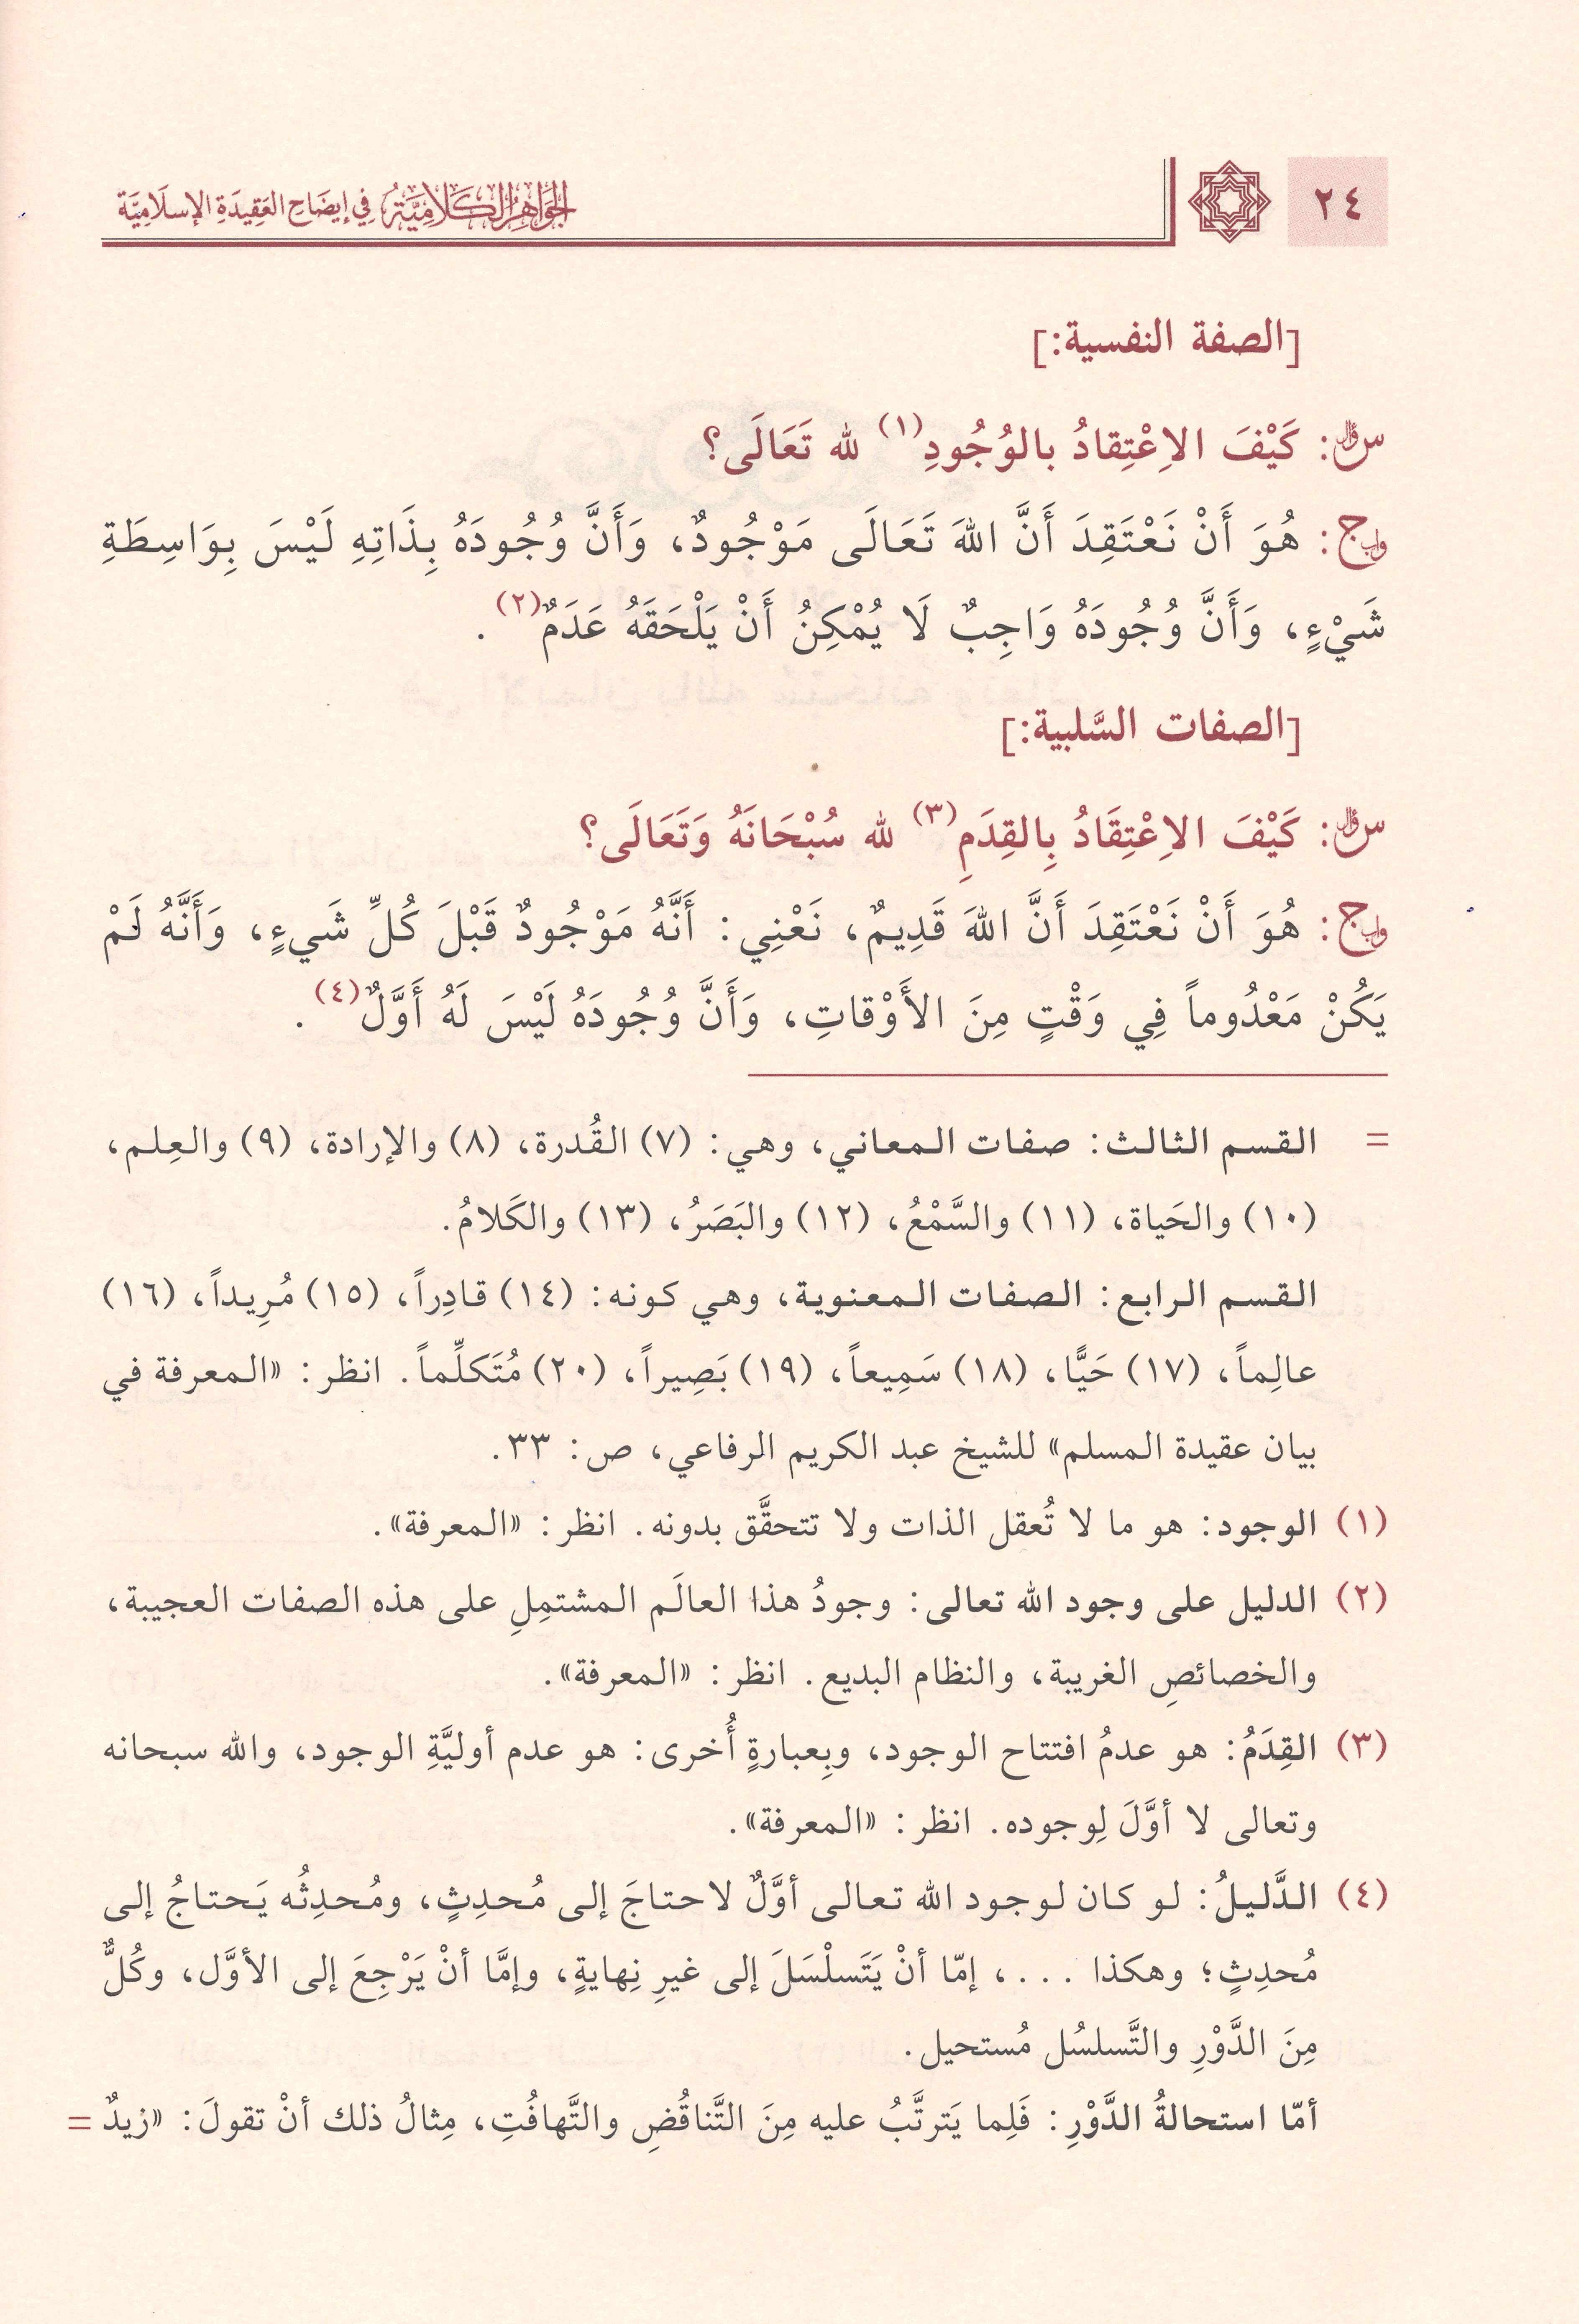 ٢٤
الجَوَاهِرُ الكَلَامِيَّةُ فِي إيضَاحِ العَقِيدَةِ الإسلَامِيَّة
[الصفة النفسية:]
سؤال: كَيْفَ الاِعْتِقادُ بالوُجُودِ(١) لله تَعَالَى؟
جواب: هُوَ أَنْ نَعْتَقِدَ أَنَّ اللهَ تَعَالَى مَوْجُودٌ، وَأَنَّ وُجُودَهُ بِذَاتِهِ لَيْسَ بِوَاسِطَةِ
شَيْءٍ، وَأَنَّ وُجُودَهُ وَاجِبٌ لَا يُمْكِنُ أَنْ يَلْحَقَهُ عَدَمٌ(٢).
[الصفات السَّلبية:]
سؤال: كَيْفَ الاِعْتِقَادُ بِالقِدَمِ(٣) لله سُبْحَانَهُ وَتَعَالَى؟
جواب: هُوَ أَنْ نَعْتَقِدَ أَنَّ اللهَ قَدِيمٌ، نَعْنِي: أَنَّهُ مَوْجُودٌ قَبْلَ كُلِّ شَيءٍ، وَأَنَّهُ لَمْ
يَكُنْ مَعْدُوماً فِي وَقْتٍ مِنَ الأَوْقاتِ، وَأَنَّ وُجُودَهُ لَيْسَ لَهُ أَوَّلٌ(٤).
= القسم الثالث: صفات المعاني، وهي: (٧) القُدرة، (٨) والإرادة، (٩) والعِلم،
(١٠) والحَياة، (١١) والسَّمْعُ، (١٢) والبَصَرُ، (١٣) والكَلامُ.
القسم الرابع: الصفات المعنوية، وهي كونه: (١٤) قادِراً، (١٥) مُرِيداً، (١٦)
عالِماً، (١٧) حَيًّا، (١٨) سَمِيعاً، (١٩) بَصِيراً، (٢٠) مُتَكلِّماً. انظر: «المعرفة في
بيان عقيدة المسلم» للشيخ عبد الكريم الرفاعي، ص: ٣٣.
(١) الوجود: هو ما لا تُعقل الذات ولا تتحقَّق بدونه. انظر: «المعرفة».
(٢) الدليل على وجود الله تعالى: وجودُ هذا العالَم المشتمِلِ على هذه الصفات العجيبة،
والخصائصِ الغريبة، والنظام البديع. انظر: «المعرفة».
(٣) القِدَمُ: هو عدمُ افتتاح الوجود، وبِعبارةٍ أُخرى: هو عدم أوليَّةِ الوجود، والله سبحانه
وتعالى لا أوَّلَ لِوجوده. انظر: «المعرفة».
(٤) الدَّليلُ: لو كان لوجود الله تعالى أوَّلٌ لاحتاجَ إلى مُحدِثٍ، ومُحدِثُه يَحتاجُ إلى
مُحدِثٍ؛ وهكذا ...، إمّا أنْ يَتَسلْسَلَ إلى غيرِ نِهايةٍ، وإمَّا أنْ يَرْجِعَ إلى الأوَّل، وكُلٌّ
مِنَ الدَّوْرِ والتَّسلسُل مُستحيل.
أمّا استحالةُ الدَّوْرِ: فَلِما يَترتَّبُ عليه مِنَ التَّناقُضِ والتَّهافُتِ، مِثالُ ذلك أنْ تقولَ: «زيدٌ =